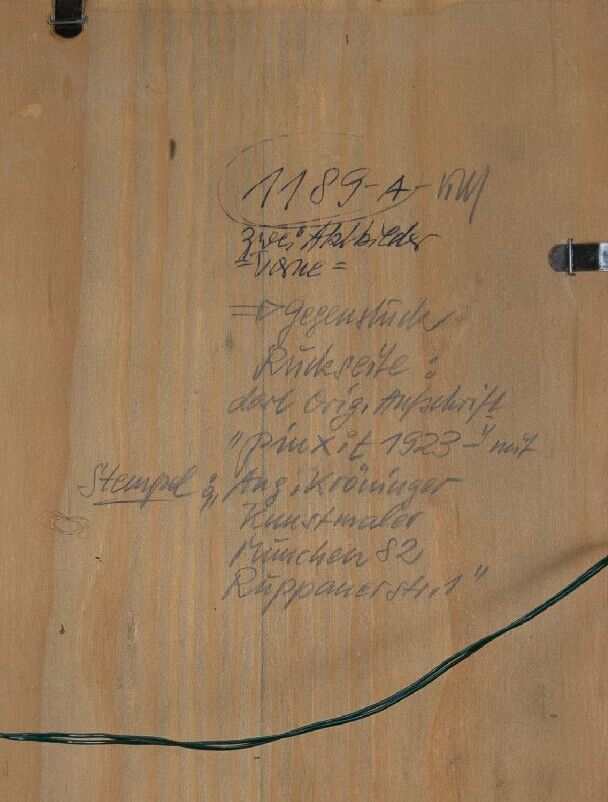 1189-A-
zwei Aktbilder
=vorne=
=> Gegenstück
Rückseite :
dort orig. Aufschrift
"pinx.t 1923-" mit
Stempel : "Aug. Kröninger
Kunstmaler
München 82
Ruppanerstr. 1"